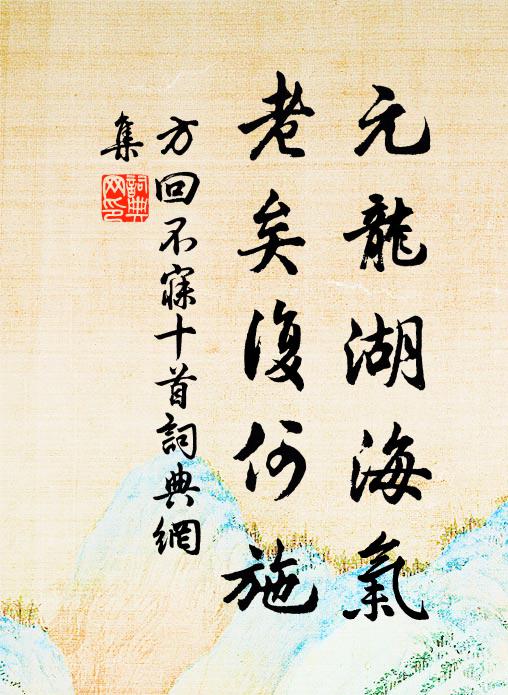 元龍湖海氣
老矣復何施
方回不寐十首詞典網
集
詞典
网印